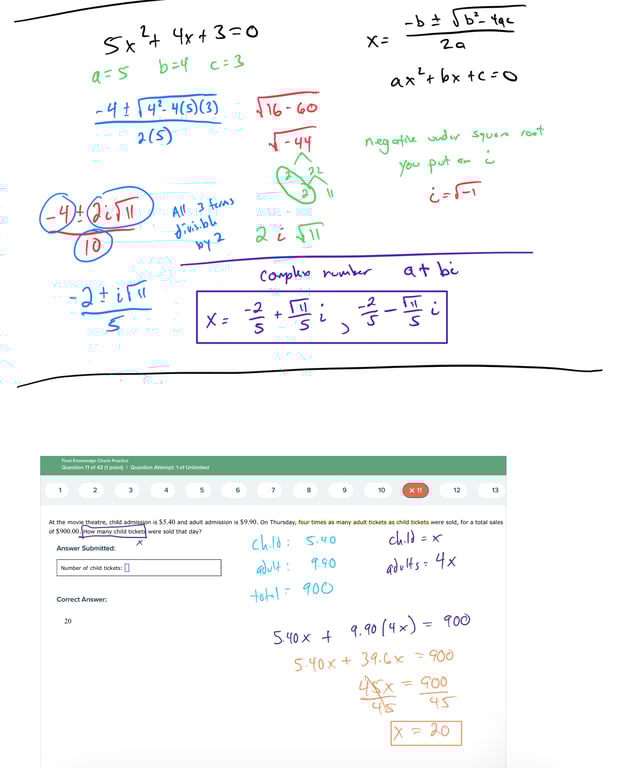 5x² + 4x + 3 = 0
a = 5 b = 4 c = 3
x = -b ± √b² - 4ac / 2a
ax² + bx + c = 0
-4 ± √4² - 4(5)(3) / 2(5)
√16 - 60
√-44
2 22
2 11
2 i √11
negative under square root
you put an i
i = √-1
-4 ± 2i√11 / 10
All 3 terms
divisible
by 2
-2 ± i√11 / 5
complex number a + bi
x = -2/5 + √11/5 i , -2/5 - √11/5 i
Final Knowledge Check Practice
Question 11 of 43 (1 point) | Question Attempt: 1 of Unlimited
1 2 3 4 5 6 7 8 9 10 × 11 12 13
At the movie theatre, child admission is $5.40 and adult admission is $9.90. On Thursday, four times as many adult tickets as child tickets were sold, for a total sales
of $900.00. How many child tickets were sold that day?
x
Answer Submitted:
Number of child tickets:
Correct Answer:
20
child: 5.40
adult: 9.90
total = 900
child = x
adults = 4x
5.40x + 9.90(4x) = 900
5.40x + 39.6x = 900
45x = 900
45 45
x = 20